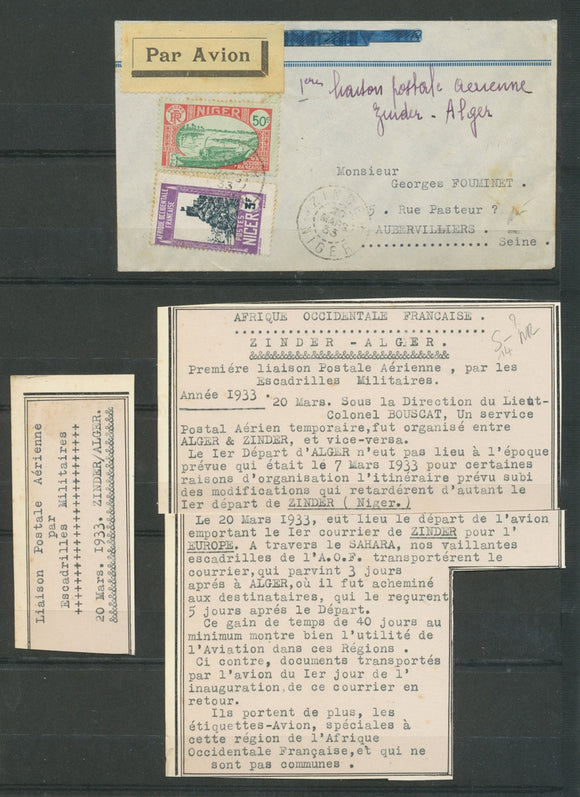 Par Avion
1ere liaison postale aerienne
Zinder - Alger
RF NIGER 50c
AFRIQUE OCCIDENTALE
FRANÇAISE
POSTES
NIGER
3F
ZINDER
20
MARS
33
NIGER
Monsieur
Georges FOUMINET.
. Rue Pasteur ?
AUBERVILLIERS .
Seine .
AFRIQUE OCCIDENTALE FRANCAISE .
ZINDER - ALGER.
&&&&&&&&&&&&&&&&&&&&&&&&&&&
Premiére liaison Postale Aérienne , par les
Escadrilles Militaires.
Année I933 .
20 Mars. Sous la Direction du Lieut-
Colonel BOUSCAT, Un service
Postal Aérien temporaire,fut organisé entre
ALGER & ZINDER, et vice-versa.
Le Ier Départ d'ALGER n'eut pas lieu à l'époque
prévue qui était le 7 Mars I933 pour certaines
raisons d'organisation l'itinéraire prévu subi
des modifications qui retardérent d'autant le
Ier départ de ZINDER ( Niger.)
Le 20 Mars I933, eut lieu le départ de l'avion
emportant le Ier courrier de ZINDER pour l'
EUROPE. A travers le SAHARA, nos vaillantes
escadrilles de l'A.O.F. transportérent le
courrier,qui parvint 3 jours
aprés à ALGER,où il fut acheminé
aux destinataires, qui le reçurent
5 jours aprés le Départ.
Ce gain de temps de 40 jours au
minimum montre bien l'utilité de
l'Aviation dans ces Régions .
Ci contre, documents transportés
par l'avion du Ier jour de l'
inauguration,de ce courrier en
retour.
Ils portent de plus, les
étiquettes-Avion, spéciales à
cette région de l'Afrique
Occidentale Française,et qui ne
sont pas communes .
Liaison Postale Aérienne
par
Escadrilles Militaires
++++++++++++++++++++++++
20 Mars. I933. ZINDER/ALGER.
&&&&&&&&&&&&&&&&&&&&&&&&&&&&